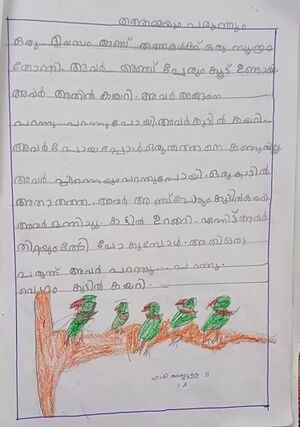 തത്തമ്മയും പരുന്തും
ഒരു ദിവസം അഞ്ച് തത്തകൾക്ക് ഒരു സൂത്രം
തോന്നി. അവർ അഞ്ച് പേരും കൂട് ഉണ്ടാക്കി
അവർ അതിൽ കയറി. അവർ അങ്ങനെ
പറന്നു... പറന്നു പോയി. അവർ കൂടിൽ കയറി...
അവർ പോയപ്പോൾ ഒരു തത്തനെ കണ്ടില്ല
അവർ പിന്നെയും പറന്നു പോയി. ഒരു കാടിൽ
അതാ തത്ത. അവർ അഞ്ച് പേരും കൂടിൽ കയറി
അവർ ഒന്നിച്ചു കാടിൽ ഉറങ്ങി. എന്നിട്ട് അവർ
പോകുമ്പോൾ. അതി ഒരു
പരുന്ത് അവർ പറന്നു... പറന്നു.
വേഗം കൂടിൽ കയറി.
1 A